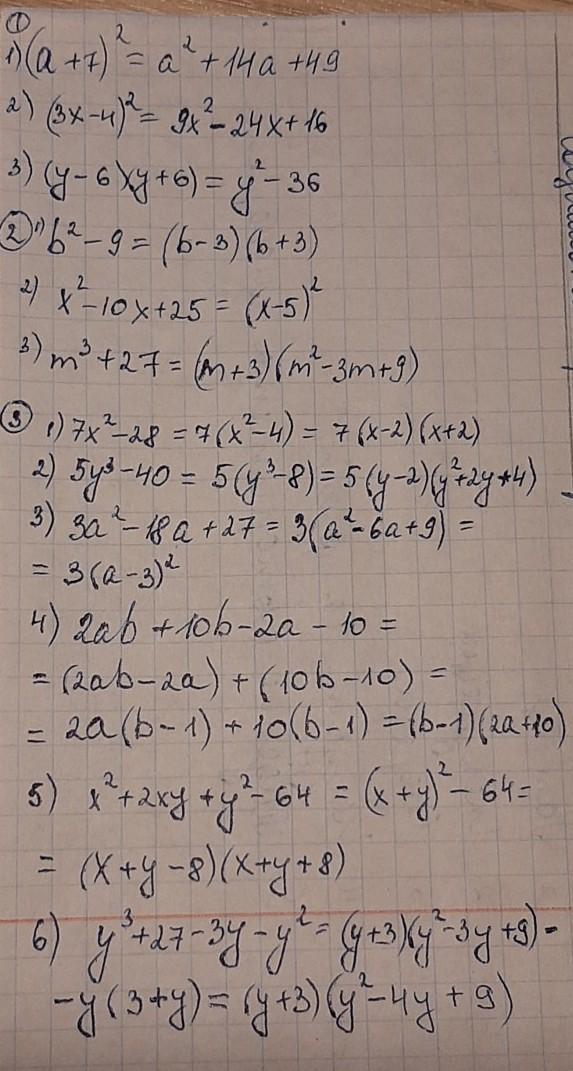 ①
1) (a+7)² = a² + 14a + 49
2) (3x-4)² = 9x² - 24x + 16
3) (y-6)(y+6) = y² - 36
② 1) b² - 9 = (b-3)(b+3)
2) x² - 10x + 25 = (x-5)²
3) m³ + 27 = (m+3)(m² - 3m + 9)
③ 1) 7x² - 28 = 7(x² - 4) = 7(x-2)(x+2)
2) 5y³ - 40 = 5(y³ - 8) = 5(y-2)(y² + 2y + 4)
3) 3a² - 18a + 27 = 3(a² - 6a + 9) =
= 3(a-3)²
4) 2ab + 10b - 2a - 10 =
= (2ab - 2a) + (10b - 10) =
= 2a(b-1) + 10(b-1) = (b-1)(2a+10)
5) x² + 2xy + y² - 64 = (x+y)² - 64 =
= (x+y-8)(x+y+8)
6) y³ + 27 - 3y - y² = (y+3)(y² - 3y + 9) -
- y(3+y) = (y+3)(y² - 4y + 9)